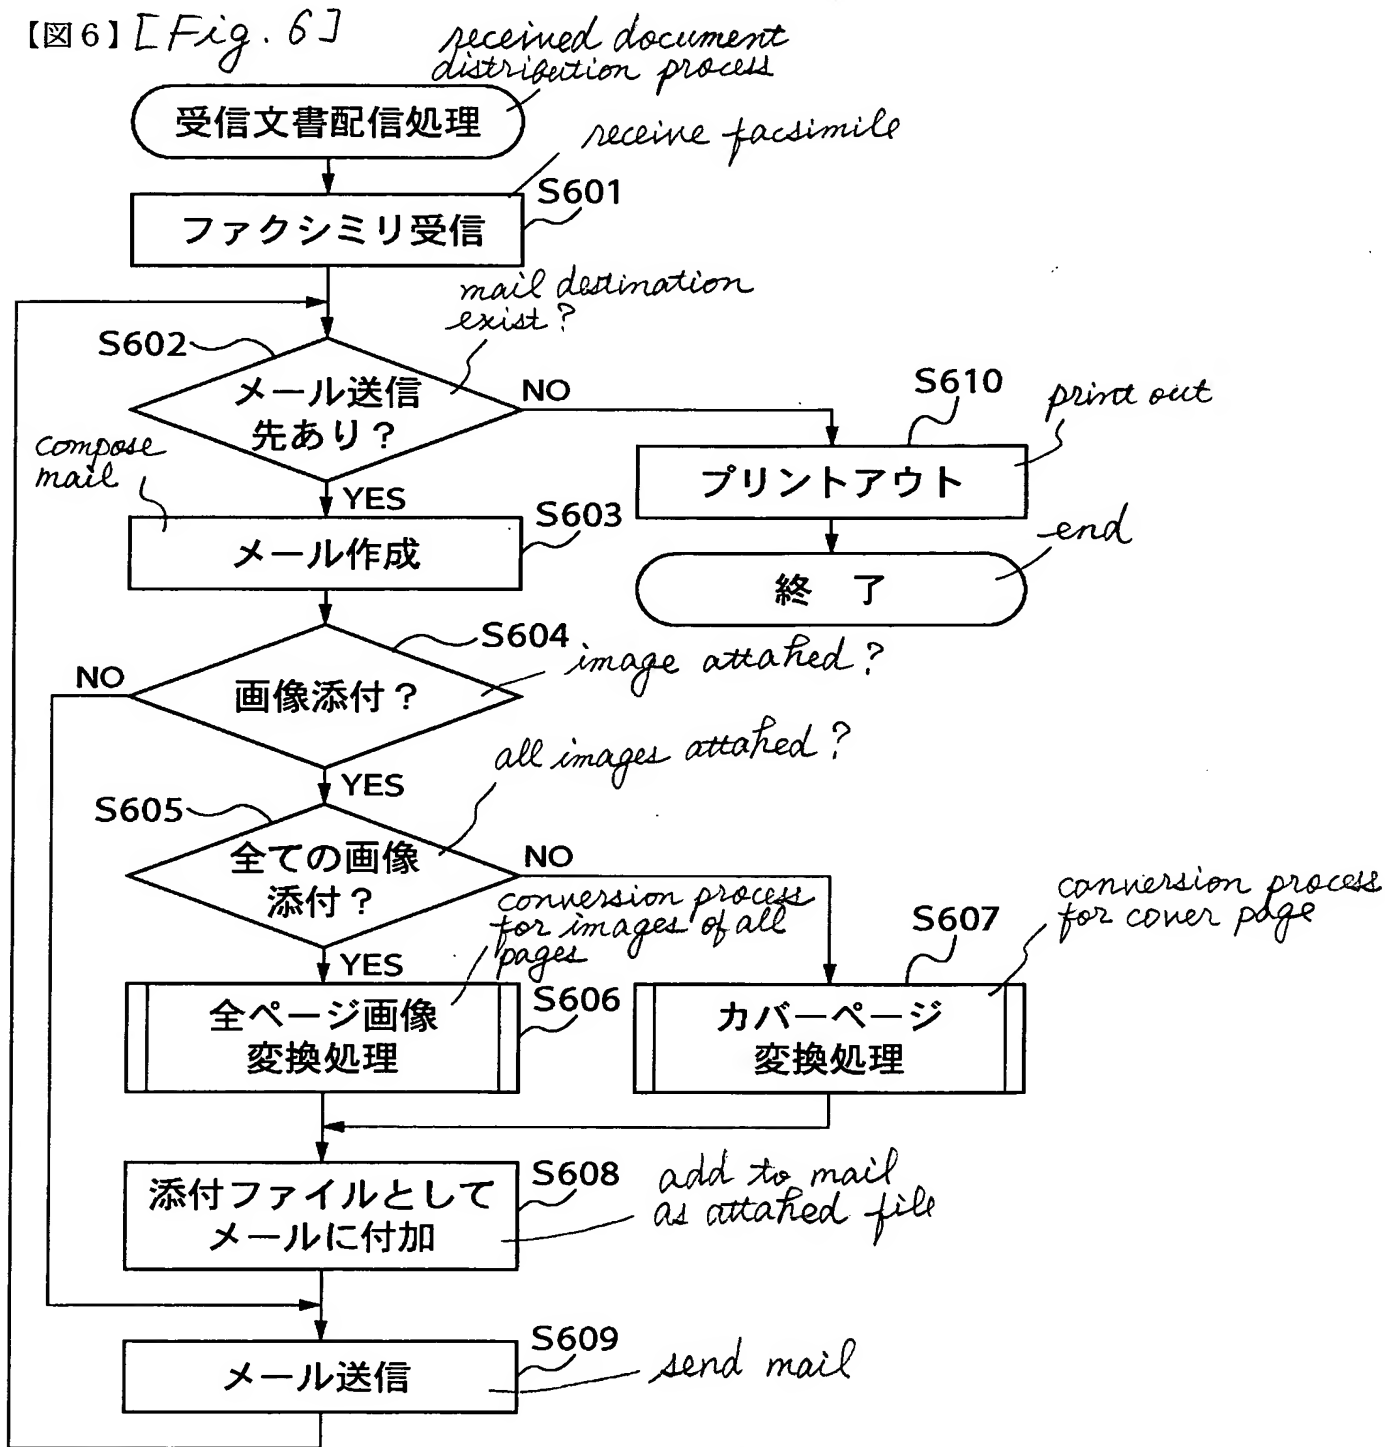 【図6】[Fig. 6]
received document
distribution process
受信文書配信処理
receive facsimile
S601
ファクシミリ受信
mail destination
exist?
S602
メール送信
先あり?
NO
S610
print out
プリントアウト
compose
mail
YES
S603
メール作成
end
終 了
S604
image attahed?
NO
画像添付?
all images attahed?
YES
S605
全ての画像
添付?
NO
conversion process
for images of all
pages
S607
conversion process
for cover page
YES
S606
全ページ画像
変換処理
カバーページ
変換処理
S608
添付ファイルとして
メールに付加
add to mail
as attahed file
S609
メール送信
send mail